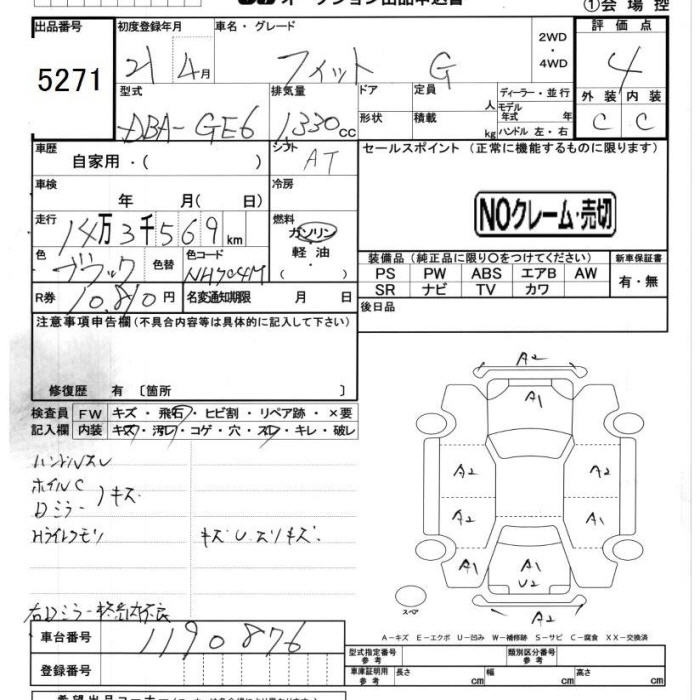 オークション出品申込書
①会場控
出品番号 初度登録年月 車名・グレード 2WD・4WD 評価点
5271 21年4月 フィット G 4
型式 排気量 ドア 定員 人 ディーラー・並行 外装 内装
DBA-GE6 1,330cc 形状 積載 kg モデル年式 年 ハンドル 左・右 C C
車歴 自家用・( ) シフト AT セールスポイント (正常に機能するものに限ります)
車検 年 月( 日) 冷房
NOクレーム・売切
走行 14万3千569km 燃料 ガソリン・軽油・
色 ブラック 色替 色コード NH704M
装備品 (純正品に限り○をつけてください) 新車保証書
PS PW ABS エアB AW 有・無
SR ナビ TV カワ
R券 10,810円 名変通知期限 月 日 後日品
注意事項申告欄 (不具合内容等は具体的に記入して下さい)
修復歴 有 [箇所 ]
検査員 FW キズ・飛石・ヒビ割・リペア跡・×要
記入欄 内装 キズ・汚レ・コゲ・穴・スレ・キレ・破レ
ハンドルスレ
ホイルC
Dミラー )キズ
Hライトクモリ キズU.スリキズ.
右Dミラー格納不良
A2
A1
A2 A2
A2 A1
A1 A1 A1
U2
A2
スペア
A-キズ E-エクボ U-凹み W-補修跡 S-サビ C-腐食 XX-交換済
車台番号 1190876
型式指定番号 参考 類別区分番号 参考
登録番号 車庫証明用 参考 長さ cm 幅 cm 高さ cm